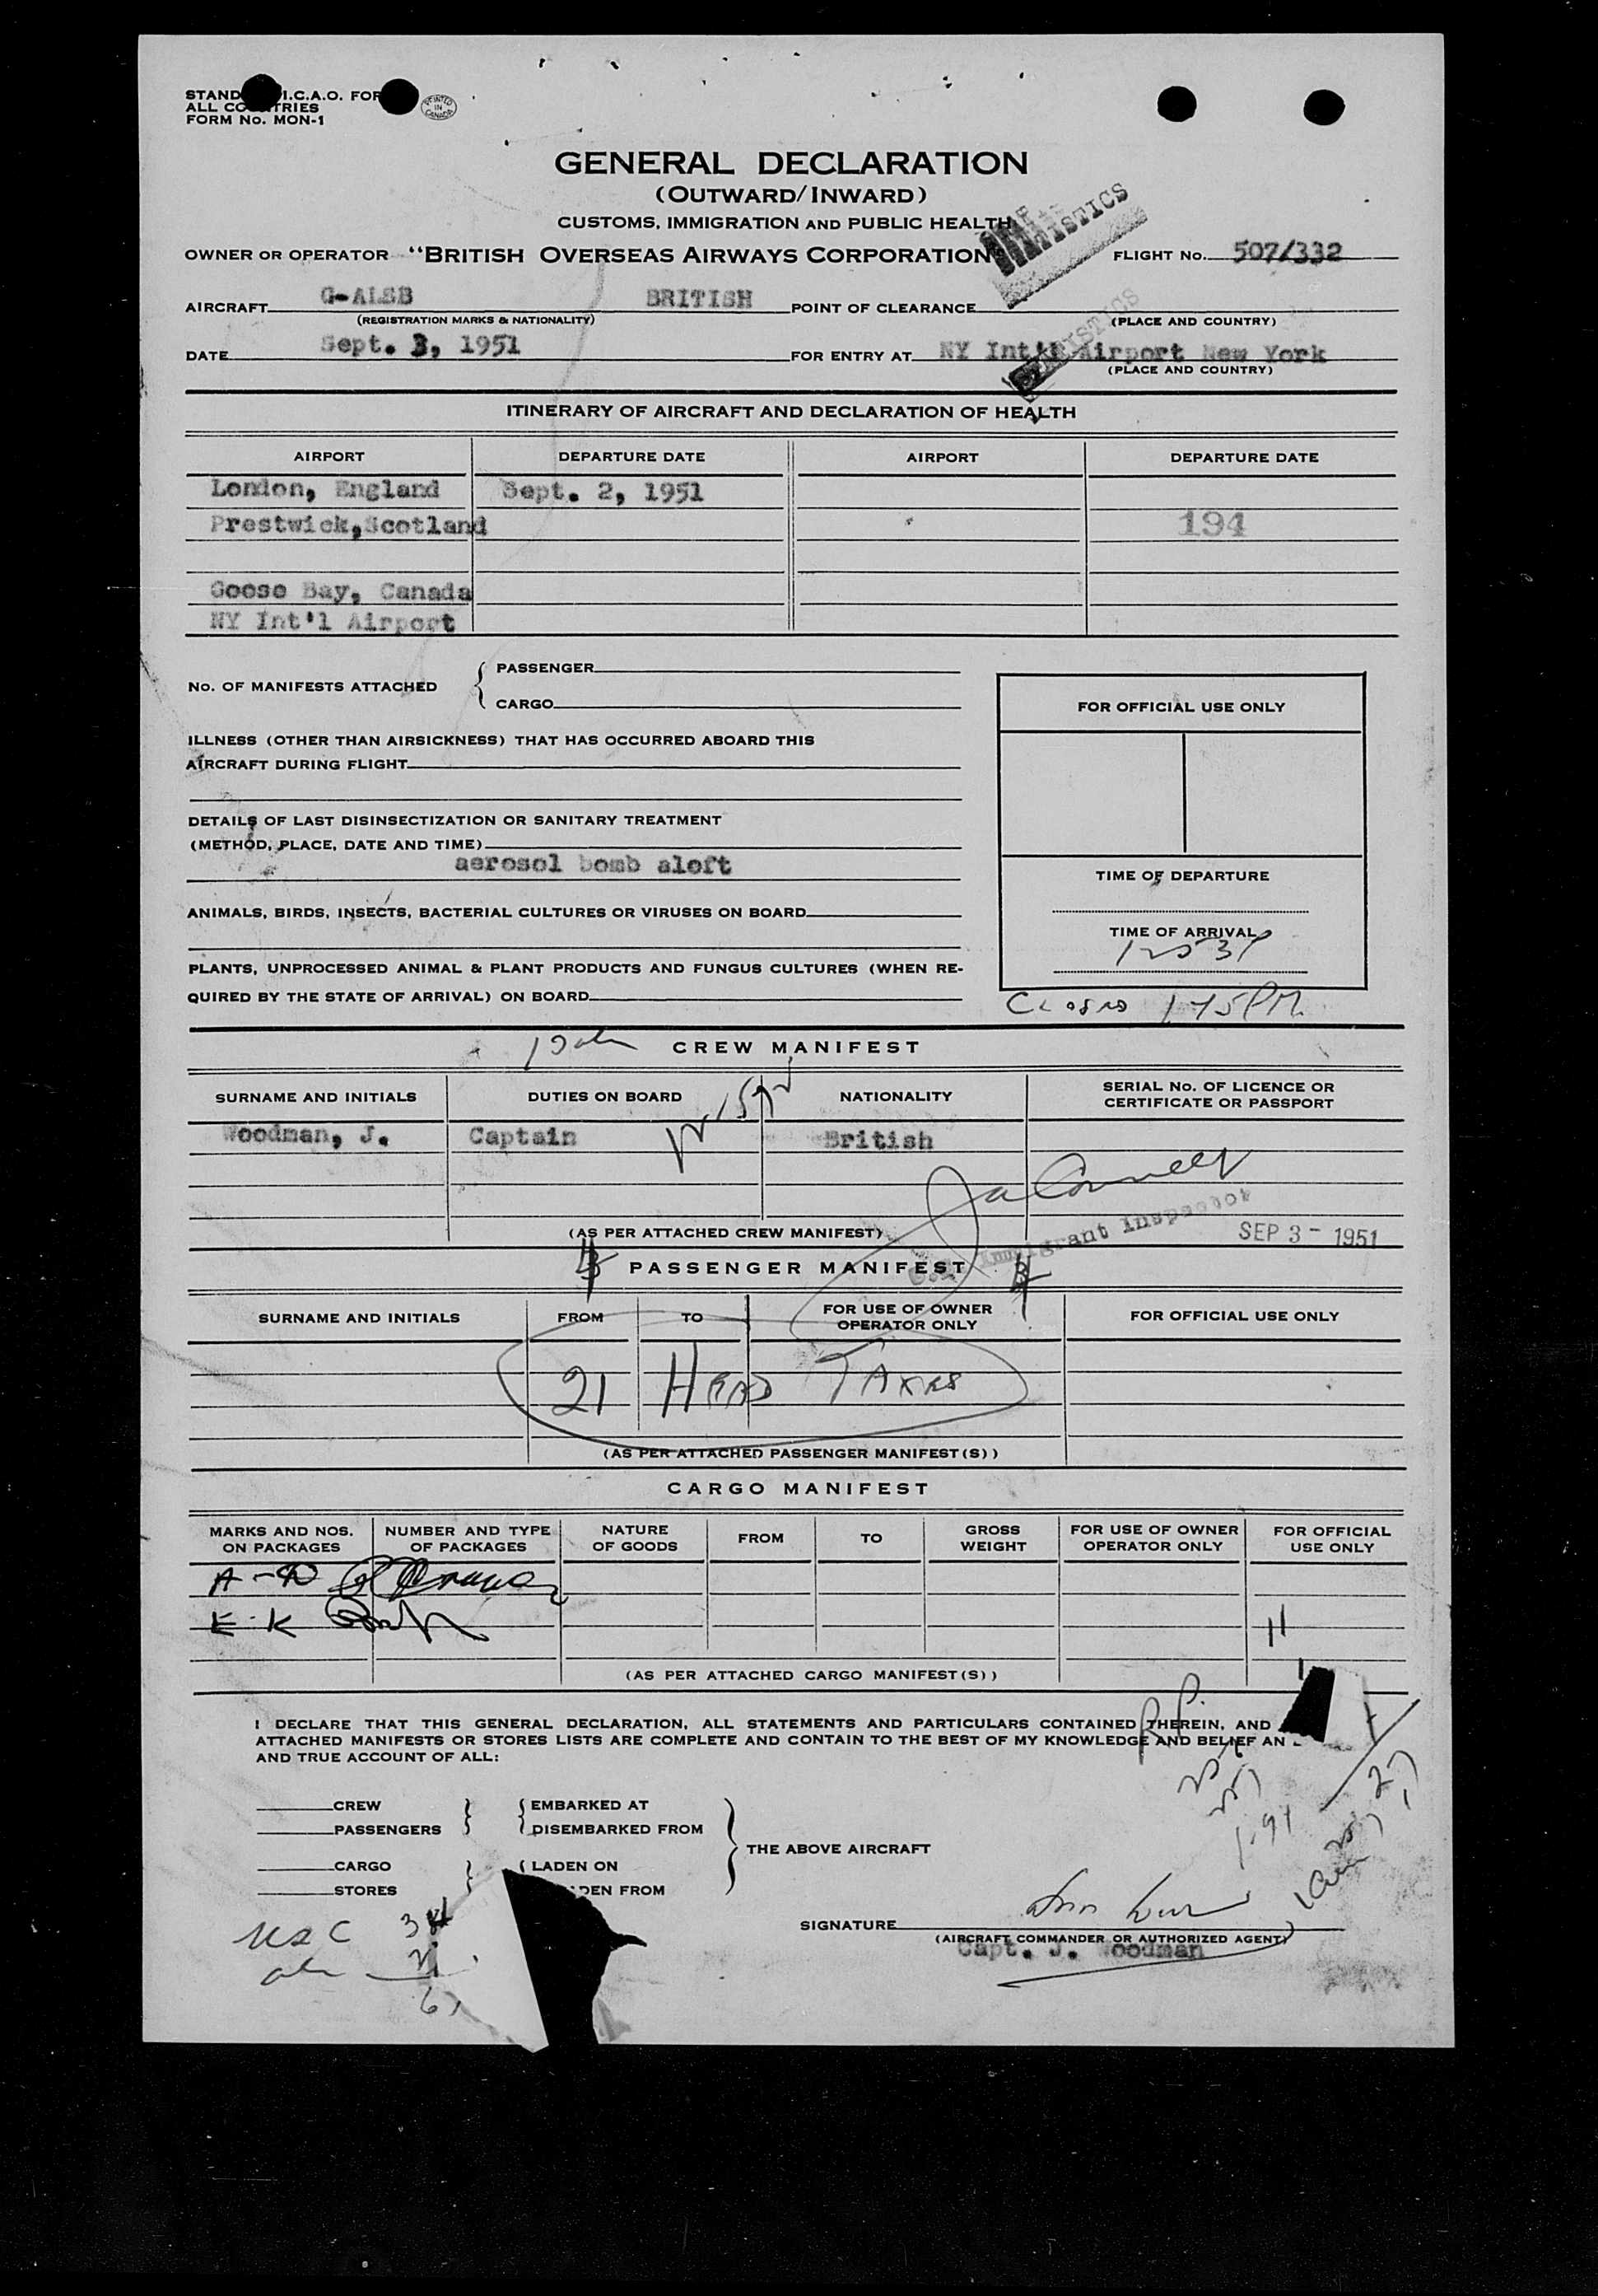 STAND I.C.A.O. FOR
ALL CO TRIES
FORM No. MON-1
PRINTED IN CANADA
GENERAL DECLARATION
(OUTWARD/INWARD)
CUSTOMS, IMMIGRATION AND PUBLIC HEALTH
STATISTICS
OWNER OR OPERATOR "BRITISH OVERSEAS AIRWAYS CORPORATION FLIGHT No. 507/332
AIRCRAFT G-ALSB BRITISH POINT OF CLEARANCE
(REGISTRATION MARKS & NATIONALITY) (PLACE AND COUNTRY)
STATISTICS
DATE Sept. 3, 1951 FOR ENTRY AT NY Int'l Airport New York
(PLACE AND COUNTRY)
ITINERARY OF AIRCRAFT AND DECLARATION OF HEALTH
AIRPORT DEPARTURE DATE AIRPORT DEPARTURE DATE
London, England Sept. 2, 1951
Prestwick,Scotland 194
Goose Bay, Canada
NY Int'l Airport
No. OF MANIFESTS ATTACHED { PASSENGER
CARGO
FOR OFFICIAL USE ONLY
ILLNESS (OTHER THAN AIRSICKNESS) THAT HAS OCCURRED ABOARD THIS
AIRCRAFT DURING FLIGHT
DETAILS OF LAST DISINSECTIZATION OR SANITARY TREATMENT
(METHOD, PLACE, DATE AND TIME)
aerosol bomb aloft
TIME OF DEPARTURE
ANIMALS, BIRDS, INSECTS, BACTERIAL CULTURES OR VIRUSES ON BOARD
TIME OF ARRIVAL
1253P
PLANTS, UNPROCESSED ANIMAL & PLANT PRODUCTS AND FUNGUS CULTURES (WHEN RE-
QUIRED BY THE STATE OF ARRIVAL) ON BOARD
CLOSED 145PM
CREW MANIFEST
SURNAME AND INITIALS DUTIES ON BOARD NATIONALITY SERIAL No. OF LICENCE OR
CERTIFICATE OR PASSPORT
Woodman, J. Captain British
Immigrant Inspector
(AS PER ATTACHED CREW MANIFEST) SEP 3 - 1951
PASSENGER MANIFEST
SURNAME AND INITIALS FROM TO FOR USE OF OWNER
OPERATOR ONLY FOR OFFICIAL USE ONLY
21 HEAD TAXES
(AS PER ATTACHED PASSENGER MANIFEST(S))
CARGO MANIFEST
MARKS AND NOS.
ON PACKAGES NUMBER AND TYPE
OF PACKAGES NATURE
OF GOODS FROM TO GROSS
WEIGHT FOR USE OF OWNER
OPERATOR ONLY FOR OFFICIAL
USE ONLY
A-D
E-K 11
(AS PER ATTACHED CARGO MANIFEST(S))
I DECLARE THAT THIS GENERAL DECLARATION, ALL STATEMENTS AND PARTICULARS CONTAINED THEREIN, AND
ATTACHED MANIFESTS OR STORES LISTS ARE COMPLETE AND CONTAIN TO THE BEST OF MY KNOWLEDGE AND BELIEF AN
AND TRUE ACCOUNT OF ALL:
CREW EMBARKED AT
PASSENGERS DISEMBARKED FROM
THE ABOVE AIRCRAFT
CARGO LADEN ON
STORES DEN FROM
USC
SIGNATURE
(AIRCRAFT COMMANDER OR AUTHORIZED AGENT)
Capt. J. Woodman